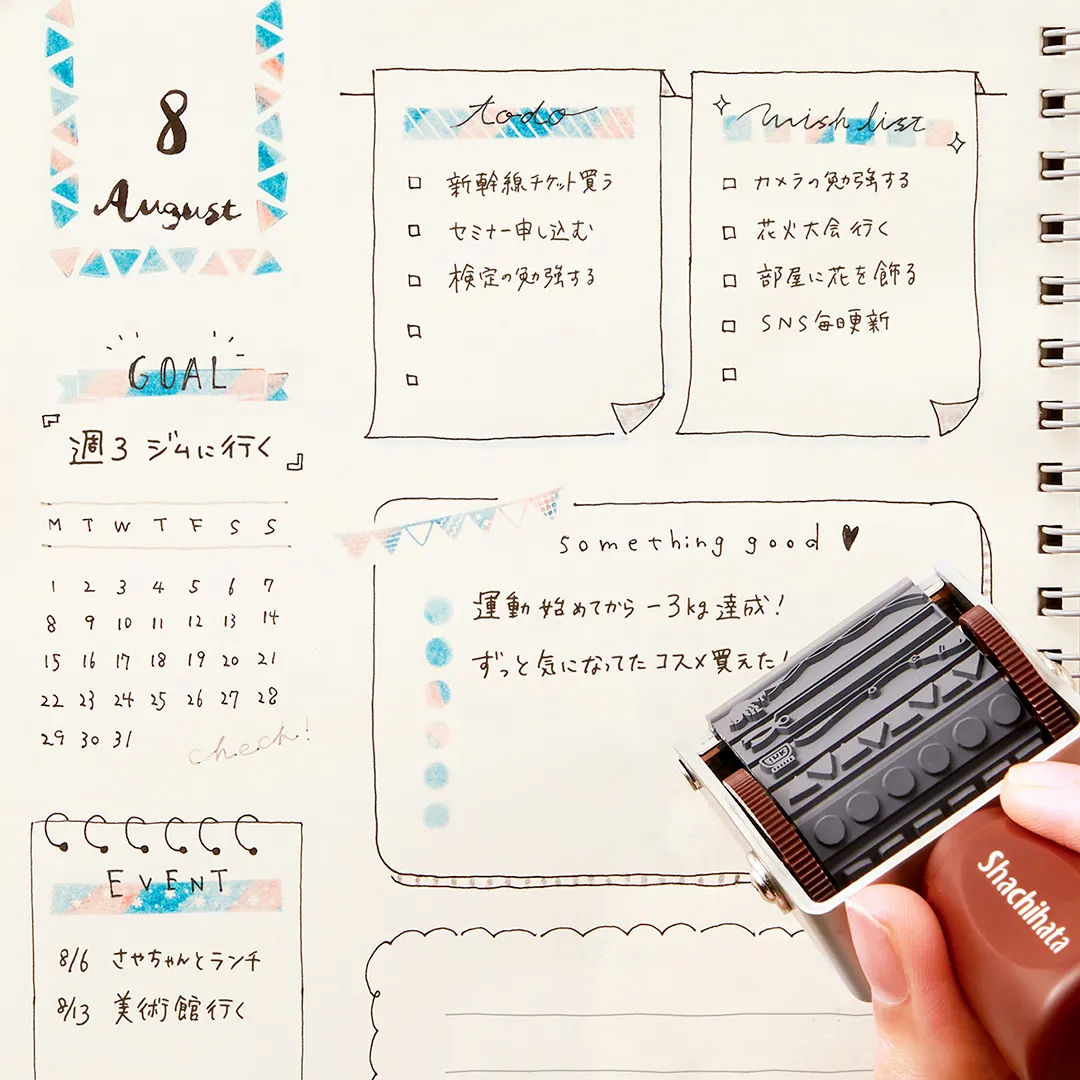 8
August
GOAL
『週3 ジムに行く』
M T W T F S S
1 2 3 4 5 6 7
8 9 10 11 12 13 14
15 16 17 18 19 20 21
22 23 24 25 26 27 28
29 30 31
check!
EVENT
8/6 さやちゃんとランチ
8/13 美術館行く
todo
□ 新幹線チケット買う
□ セミナー申し込む
□ 検定の勉強する
□
□
wish list
□ カメラの勉強する
□ 花火大会行く
□ 部屋に花を飾る
□ SNS毎日更新
□
something good ♥
運動始めてから－3kg達成!
ずっと気になってたコスメ買えた!
Shachihata